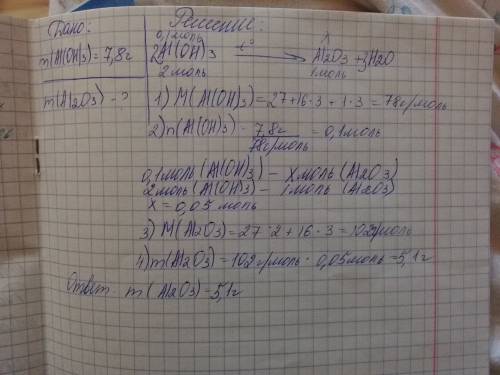 Дано:
m(Al(OH)3)=7,8г
m(Al2O3)-?
Решение:
0,1моль
2Al(OH)3 t° → Al2O3+3H2O
2моль 1моль
1) M(Al(OH)3)=27+16·3+1·3=78г/моль
2) n(Al(OH)3)= 7,8г = 0,1моль
78г/моль
0,1моль(Al(OH)3)- Xмоль(Al2O3)
2моль(Al(OH)3)- 1моль (Al2O3)
X=0,05моль
3) M(Al2O3)=27·2+16·3=102г/моль
4) m(Al2O3)=102г/моль·0,05моль=5,1г
Ответ: m(Al2O3)=5,1г